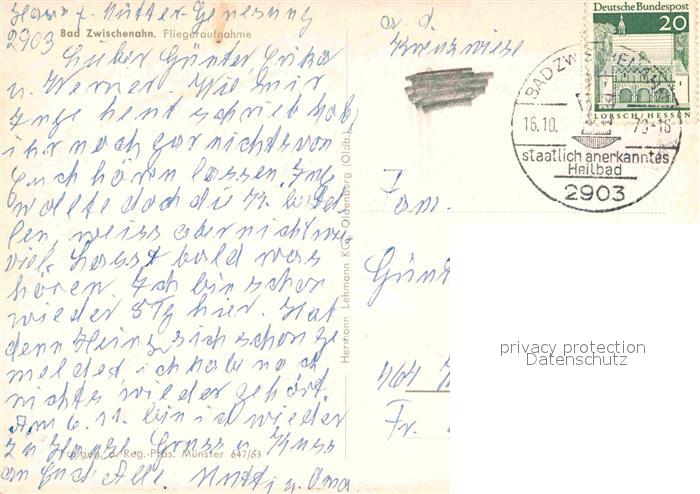 Haus f. Mütter-Genesung
2903
Bad Zwischenahn. Fliegeraufnahme
Lieber Günter, Erika
u. Werner. Wie mir
Inge heut schrieb hab
ihr noch gar nichts von
Euch hören lassen. Inge
wollte doch die
len, weiss aber nicht wie
viel. Lasst bald was
hören. Ich bin schon
wieder 8 Tg hier. Hat
denn Heinz sich schon ge
meldet ich hab noch
nichts wieder gehört.
Am 6.11. bin ich wieder
zu Hause Gruss u. Kuss
an Euch Alle. Mutti u. Oma
Freigeg. d. Reg.-Präs. Münster 647/63
Herrmann Lehmann KG. Oldenburg (Oldb.)
a. d.
Kreuzwiese
Deutsche Bundespost
20
LORSCH/HESSEN
BAD ZWISCHENAHN
16.10. 70-16
staatlich anerkanntes
Heilbad
2903
Fam.
Günt
464
Fr.
privacy protection
Datenschutz